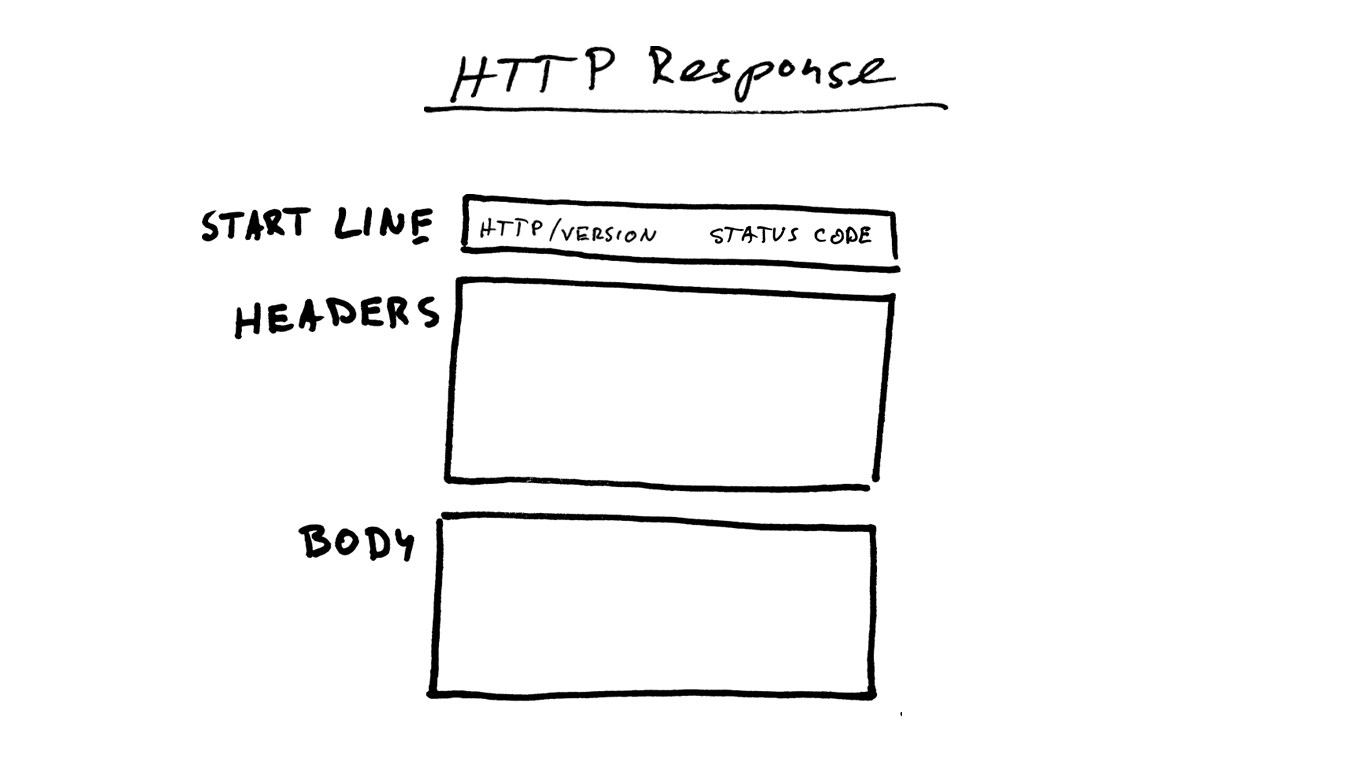 HTTP Response
START LINE
HTTP/VERSION STATUS CODE
HEADERS
BODY